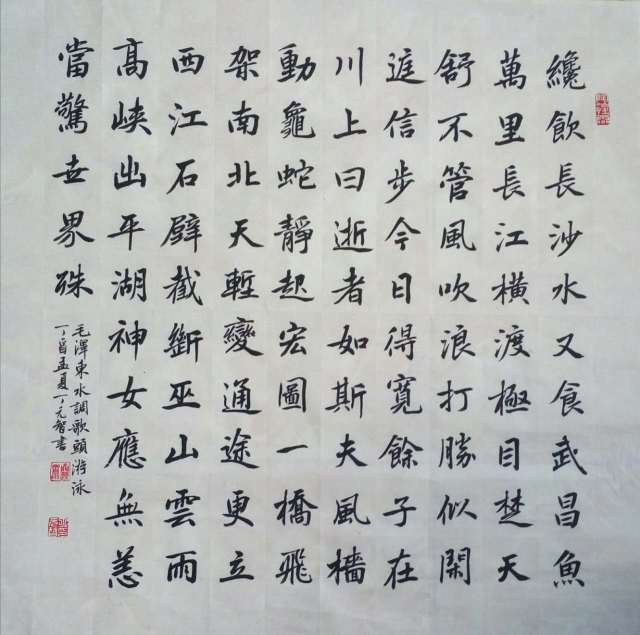 纔飲長沙水又食武昌魚
萬里長江橫渡極目楚天
舒不管風吹浪打勝似閑
庭信步今日得寬餘子在
川上曰逝者如斯夫風檣
動龜蛇靜起宏圖一橋飛
架南北天塹變通途更立
西江石壁截斷巫山雲雨
高峽出平湖神女應無恙
當驚世界殊
毛澤東水調歌頭游泳
丁酉孟夏丁元智書